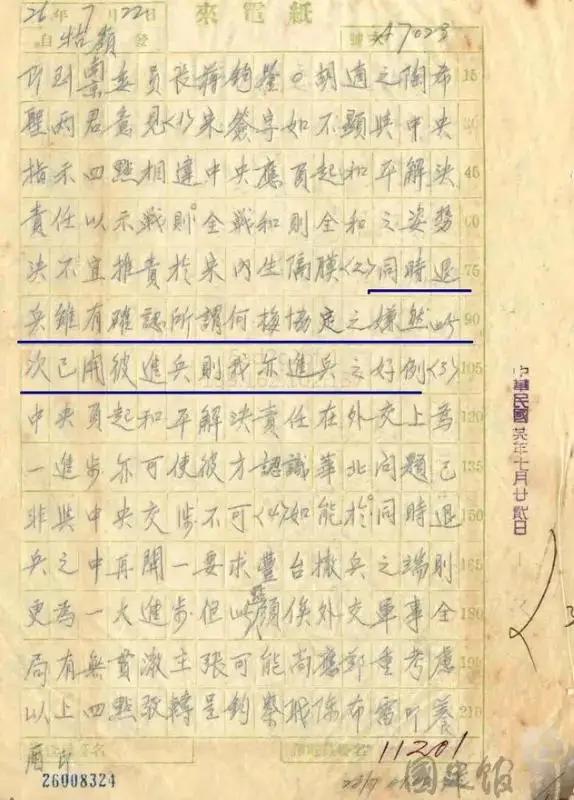 來電紙
26年7月22日
自牯嶺發 號 47023
即到 委員長蔣鈞鑒。胡適之陶希 15
聖兩君意見(1)宋簽字如不顯與中央 30
指示四點相違中央應負起和平解決 45
責任以示戰則全戰和則全和之姿勢 60
決不宜推責於宋內生隔膜(2)同時退 75
兵雖有確認所謂何梅協定之嫌然此 90
次已開彼進兵則我亦進兵之好例(3) 105
中央負起和平解決責任在外交上為 120
一進步亦可使彼方認識華北問題已 135
非與中央交涉不可(4)如能於同時退 150
兵之中再開一要求豐台撤兵之端則 165
更為一大進步但此點須俟外交軍事全 180
局有無貫澈主張可能尚應鄭重考慮 195
以上四點敬轉呈鈞察職陳布雷叩養 210
酉印
11201
26008324
國史館
中華民國廿六年七月廿貳日